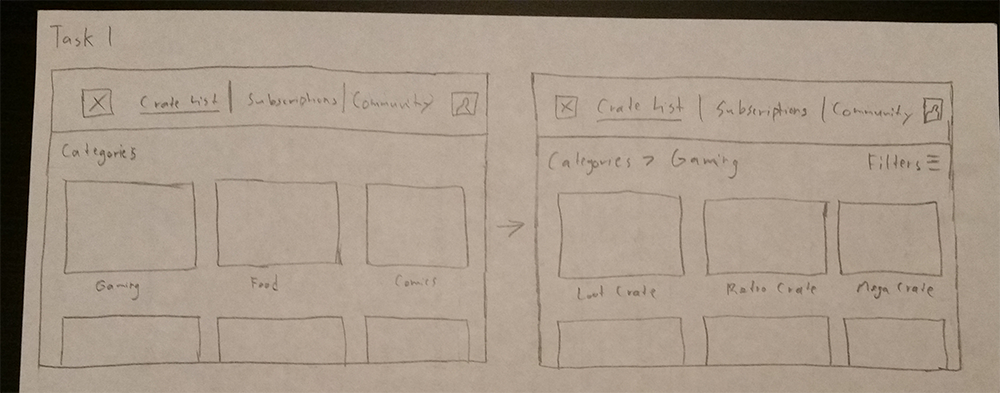 Task 1
Crate List | Subscriptions | Community
Categories
Gaming Food Comics
Crate List | Subscriptions | Community
Categories > Gaming Filters
Loot Crate Retro Crate Mega Crate